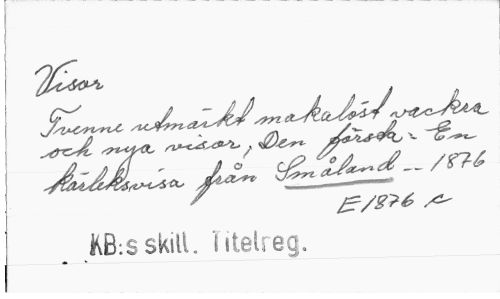 Visor
Tvenne utmärkt makalöst vackra
och nya visor, Den första: En
kärleksvisa från Småland -- 1876
E 1876 c
KB:s skill. Titelreg.